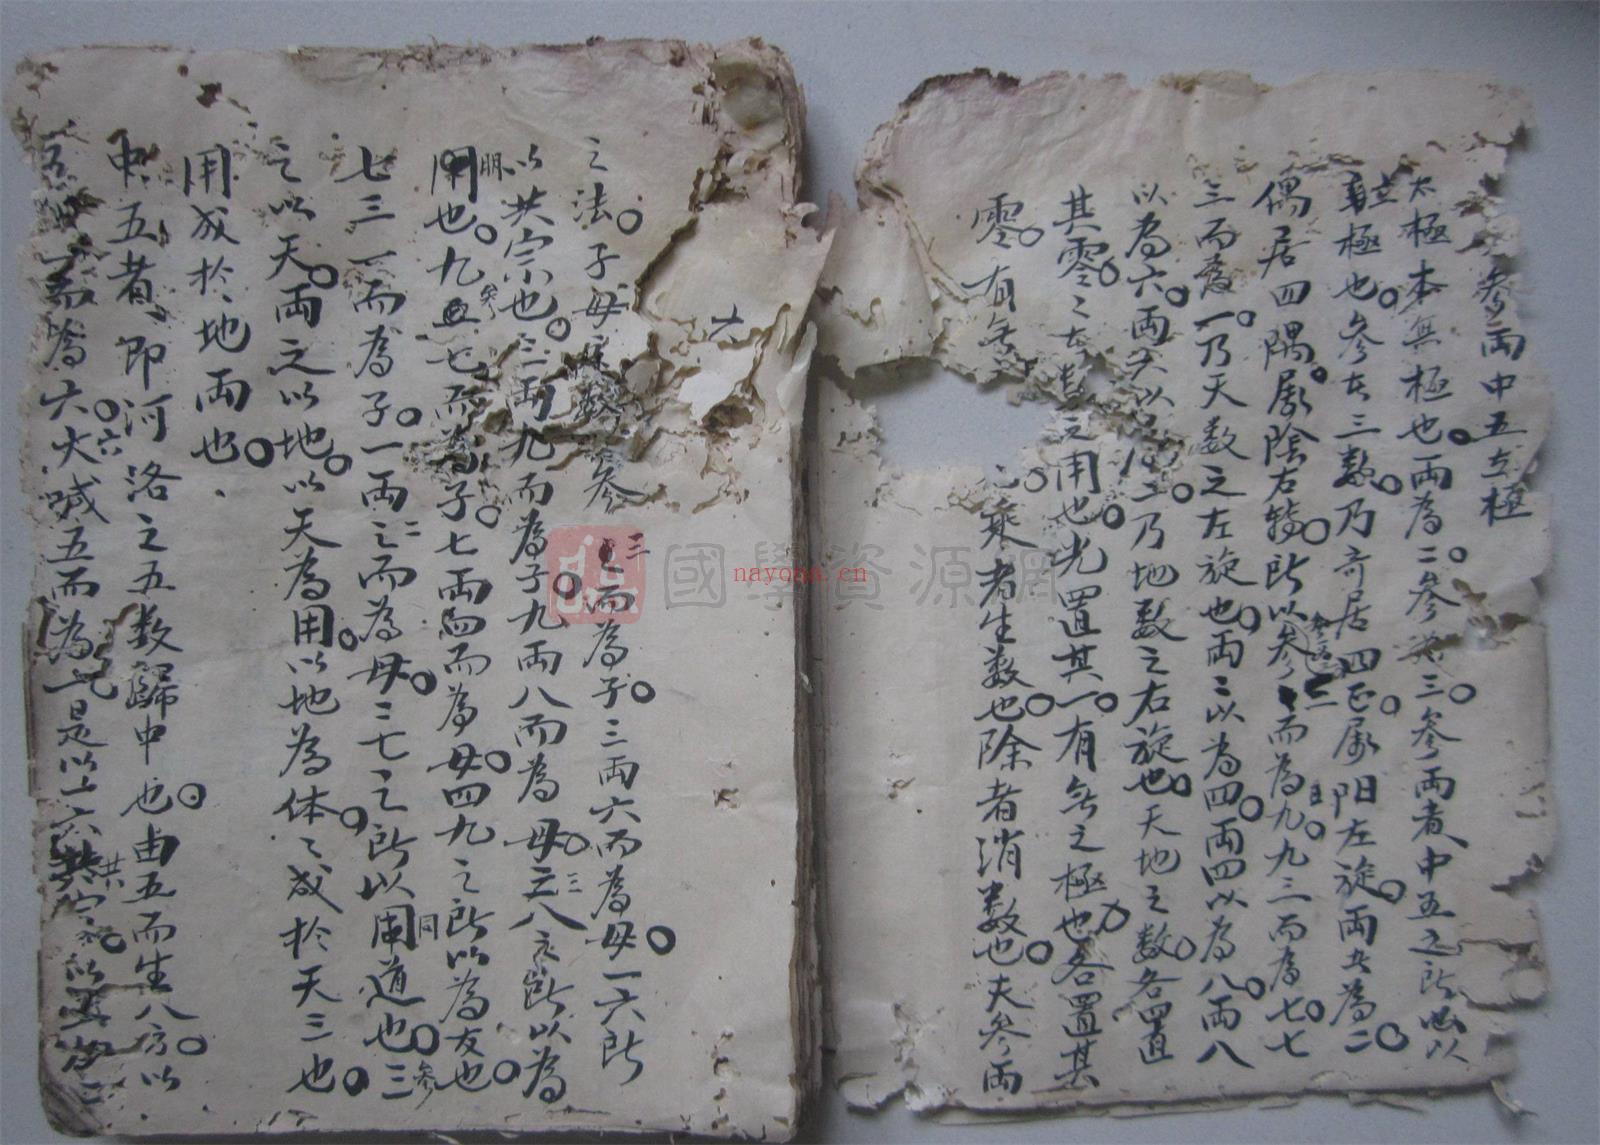 參兩中五立極
太極本無極也兩為二參為三參兩者中五之所以
立極也參在三數乃奇居四正屬陽左旋兩在為二
偶居四隅屬陰右轉所以參三而為九九三而為七七
三而為一乃天數之左旋也兩二以為四兩四以為八兩八
以為六兩六以乃地數之右旋也天地之數各置
其零之用也先置其一有無之極也各置其
零有無乘者生數也除者消數也夫參兩
之法子母數參三而為子三兩六而為母一六所
以共宗也三兩九而為子九兩八而為母三八之所以為
朋也九七而為子七兩而為母四九之所以為友也
七三一而為子一兩二而為母二七之所以同道也三
之以天兩之以地以天為用以地為体成於天三也
用成於地兩也
中五者即河洛之五數歸中也由五而生八方以
五而為六大減五而為一是以一六共宗以五
六
國學資源網
nayona.cn